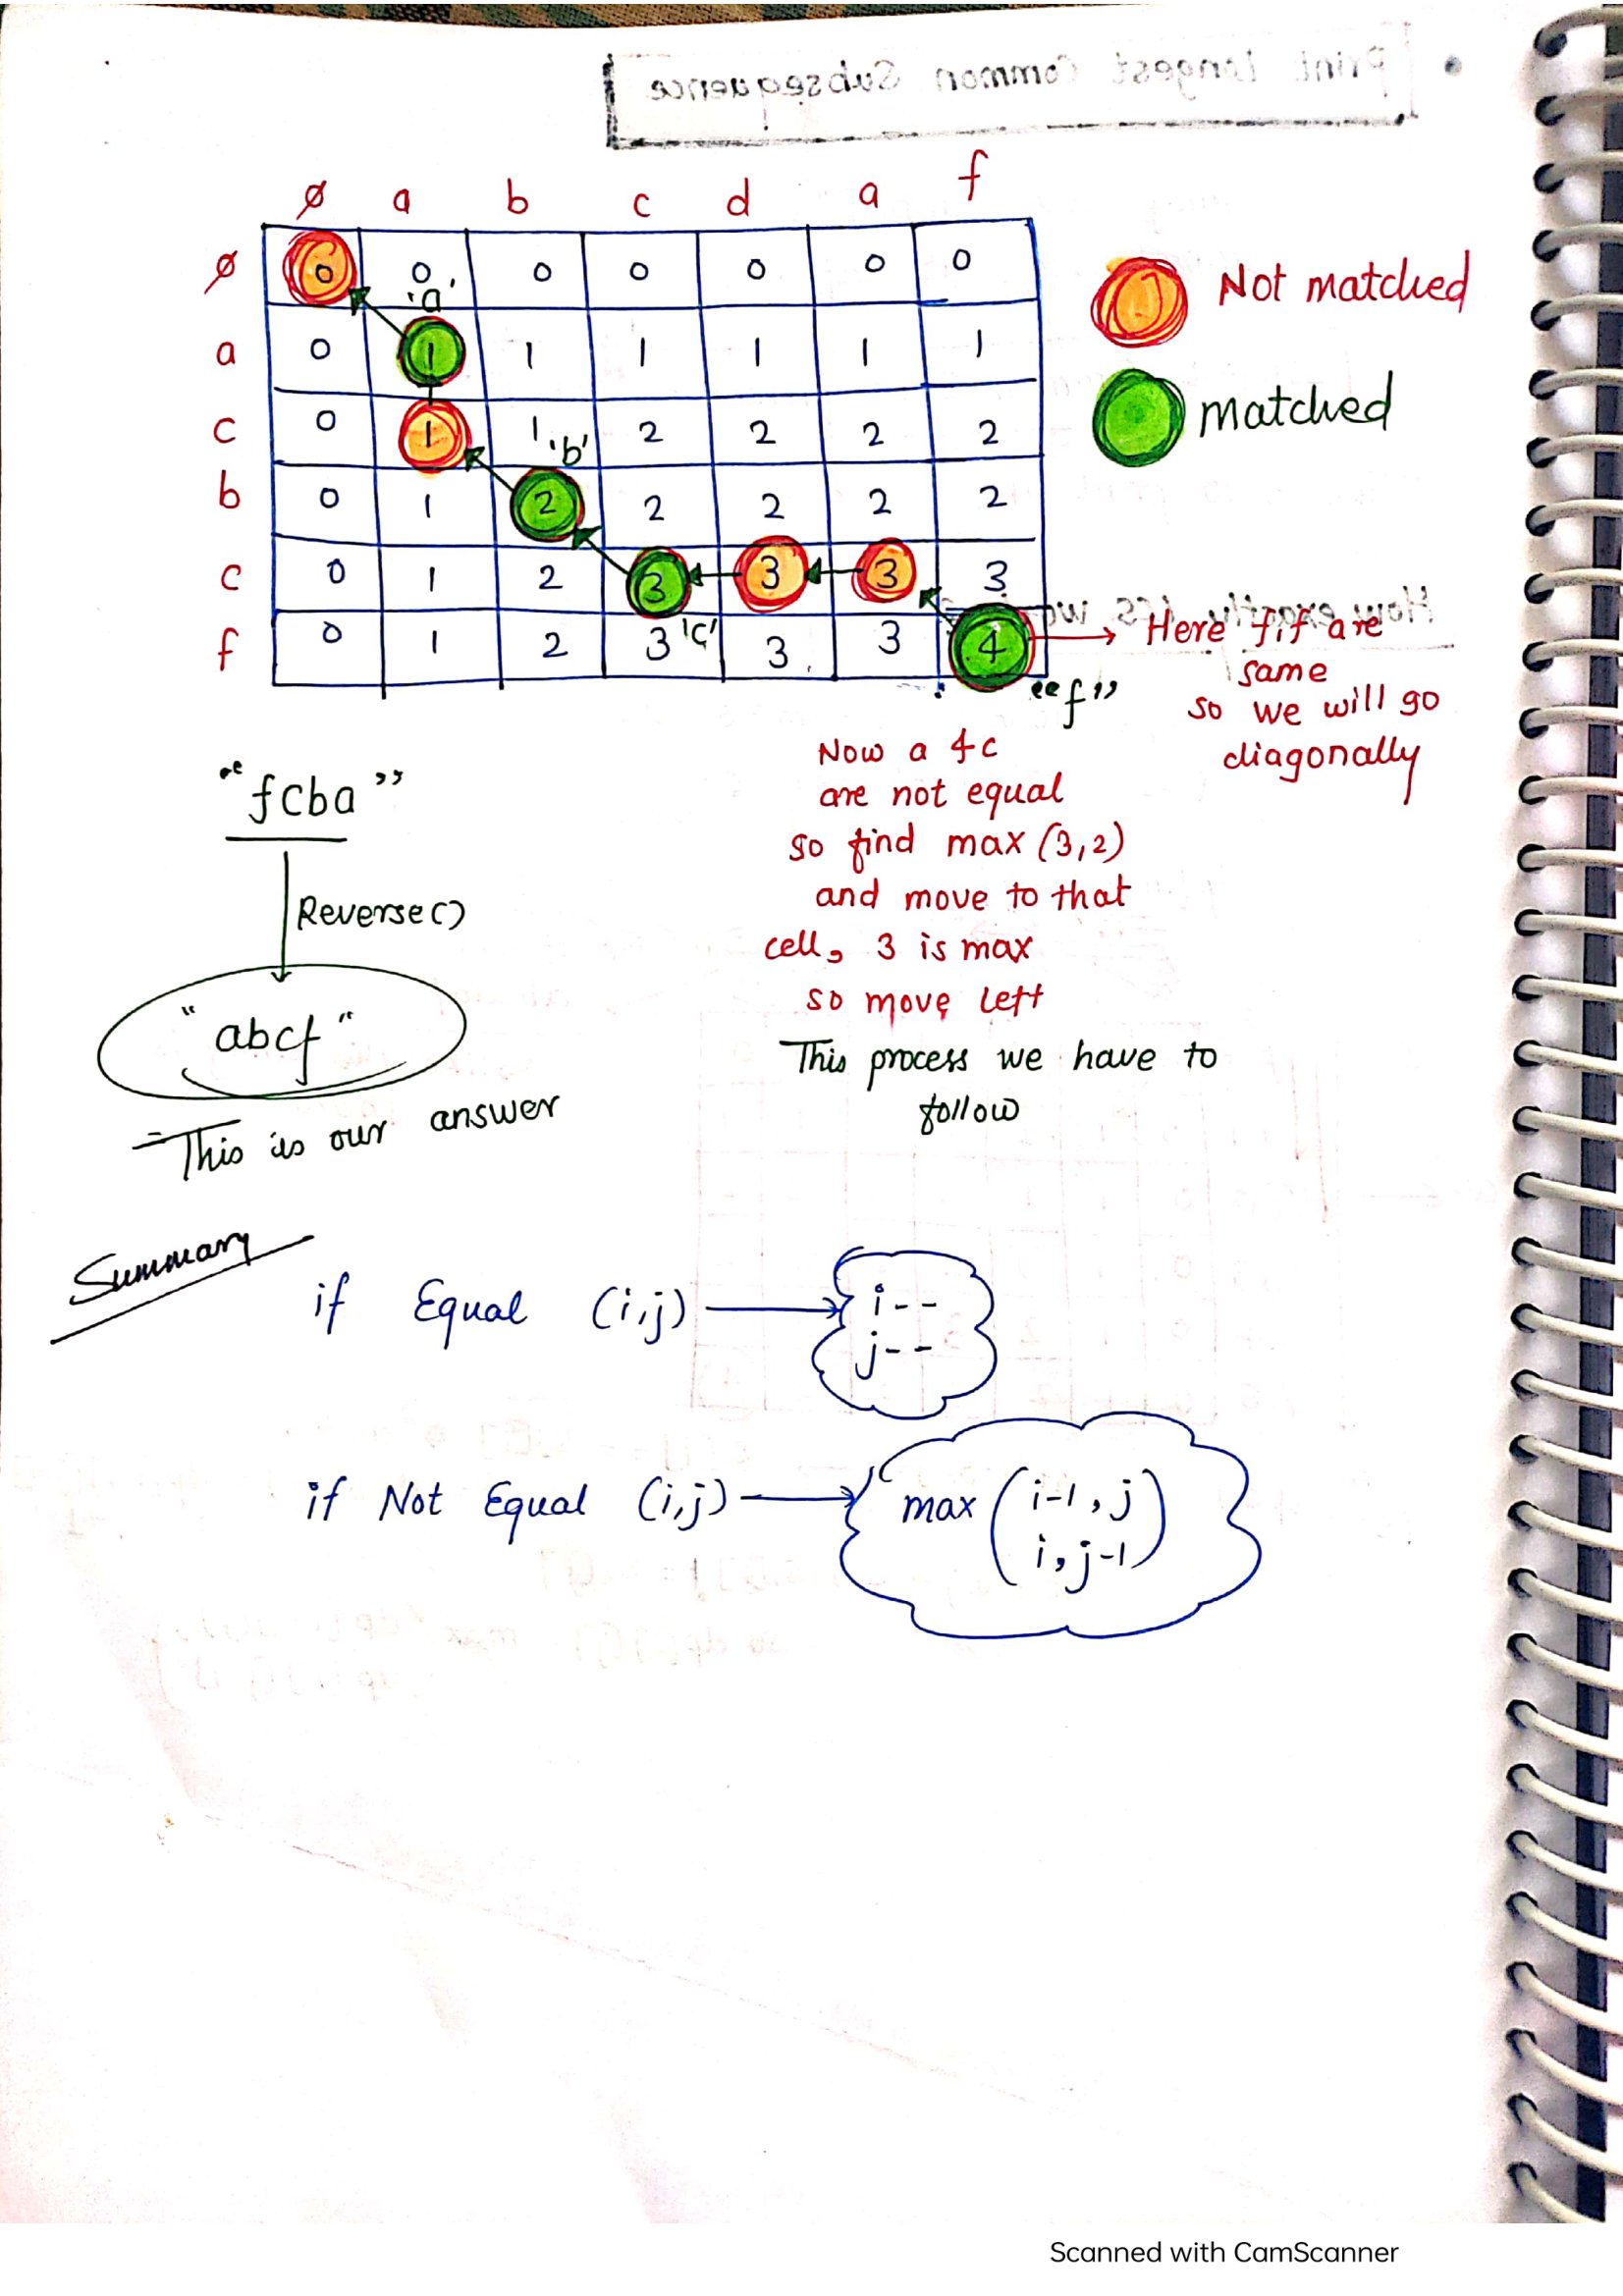 Print Longest Common Subsequence
ø a b c d a f
ø 0 0 0 0 0 0 0
'a'
a 0 1 1 1 1 1 1
c 0 1 1 2 2 2 2
'b'
b 0 1 2 2 2 2 2
c 0 1 2 3 3 3 3
f 0 1 2 3 'c' 3 3 4
"f"
Not matched
matched
How exactly LCS
Here f,f are
same
so we will go
diagonally
Now a & c
are not equal
so find max (3,2)
and move to that
cell, 3 is max
so move left
This process we have to
follow
"fcba"
Reverse()
"abcf"
This is our answer
Summary
if Equal (i,j)
i--
j--
if Not Equal (i,j)
max (i-1, j
i, j-1)
Scanned with CamScanner